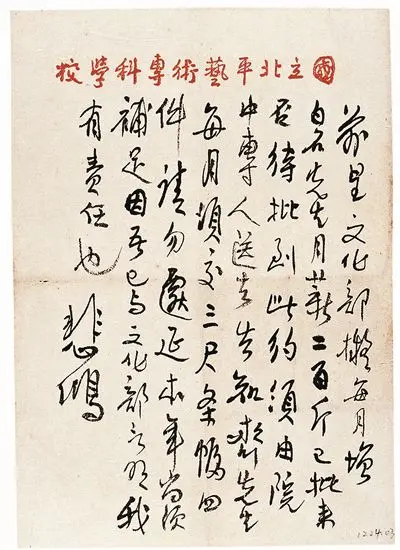 國立北平藝術專科學校
前呈文化部擬每月增
白石先生月薪二百斤已批來
否待批到此約須由院
中專人送去告知齊先生
每月須交三尺条幅四
件請勿遷延本年尚須
補足因吾已与文化部言明我
有責任也
悲鴻
1224.03